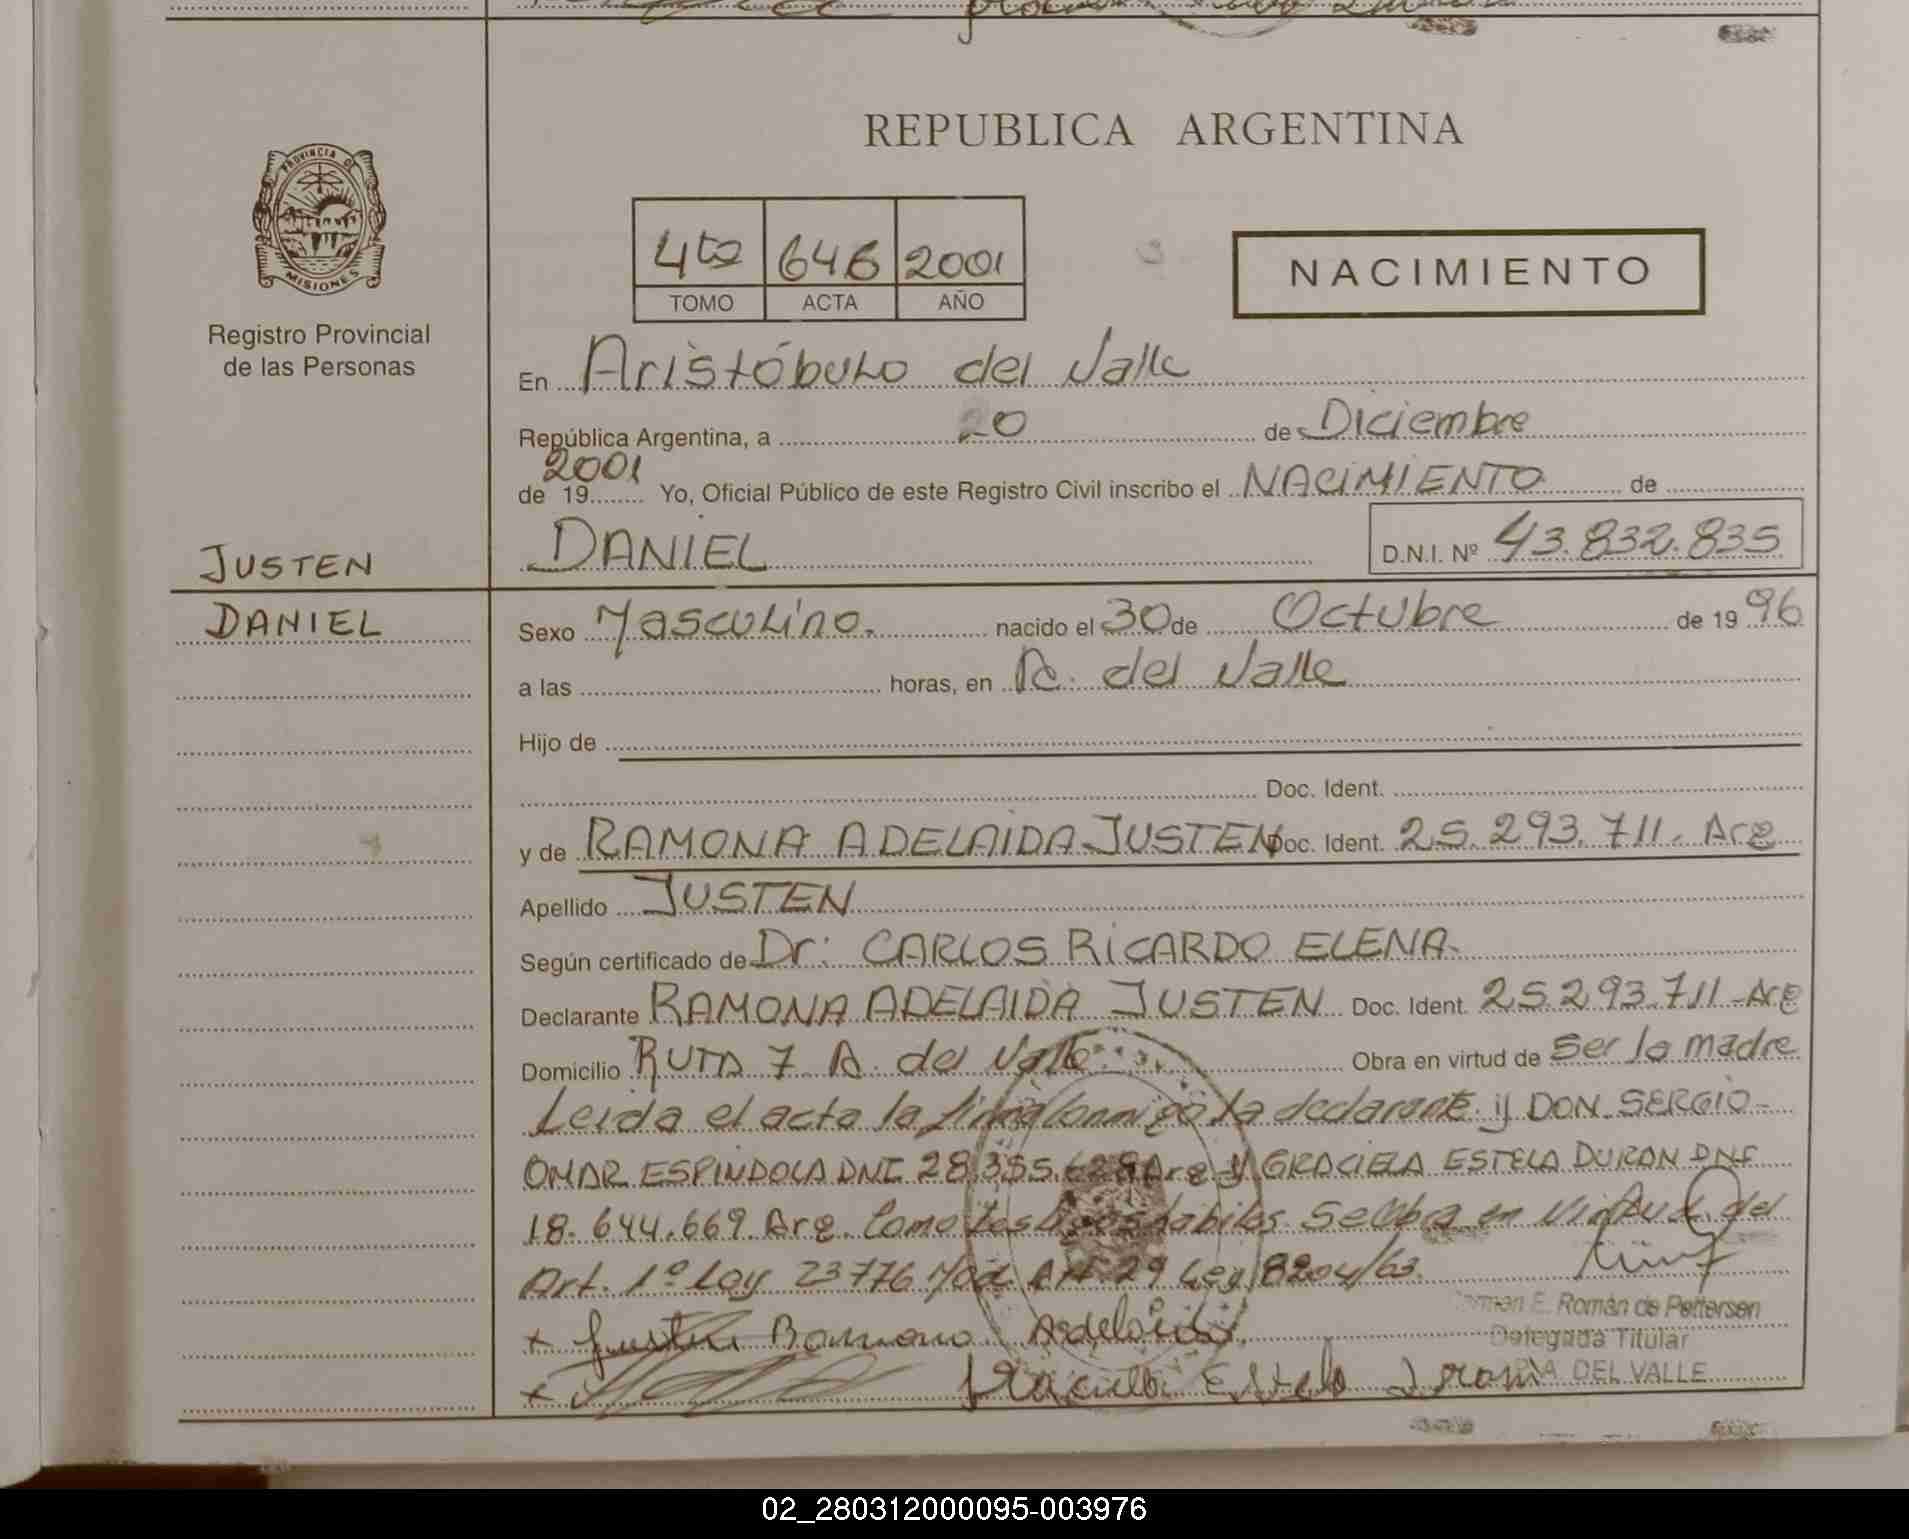 REPUBLICA ARGENTINA
PROVINCIA DE
MISIONES
Registro Provincial
de las Personas
4to 646 2001
TOMO ACTA AÑO
NACIMIENTO
En Aristóbulo del Valle
República Argentina, a 20 de Diciembre
de 19 2001 Yo, Oficial Público de este Registro Civil inscribo el NACIMIENTO de
JUSTEN
DANIEL D.N.I. Nº 43.832.835
DANIEL
Sexo Masculino. nacido el 30 de Octubre de 19 96
a las horas, en A. del Valle
Hijo de
Doc. Ident.
y de RAMONA ADELAIDA JUSTEN Doc. Ident. 25.293.711. Arg
Apellido JUSTEN
Según certificado de Dr: CARLOS RICARDO ELENA.
Declarante RAMONA ADELAIDA JUSTEN Doc. Ident. 25.293.711 - Arg
Domicilio RUTA 7 A. del Valle. Obra en virtud de ser la madre
Leida el acta la firma conmigo la declarante. y DON SERGIO
OMAR ESPINDOLA DNI 28.355.628 Arg y GRACIELA ESTELA DURAN DNI
18.644.669 Arg. Como testigos habiles. Se Obra en Virtud del
Art. 1º Ley 23776 Mod. Art. 29 Ley 8204/63.
E. Román de Pettersen
Delegada Titular
DEL VALLE
+ Justen Ramona Adelaida
+ Graciela Estela Duran
02_280312000095-003976